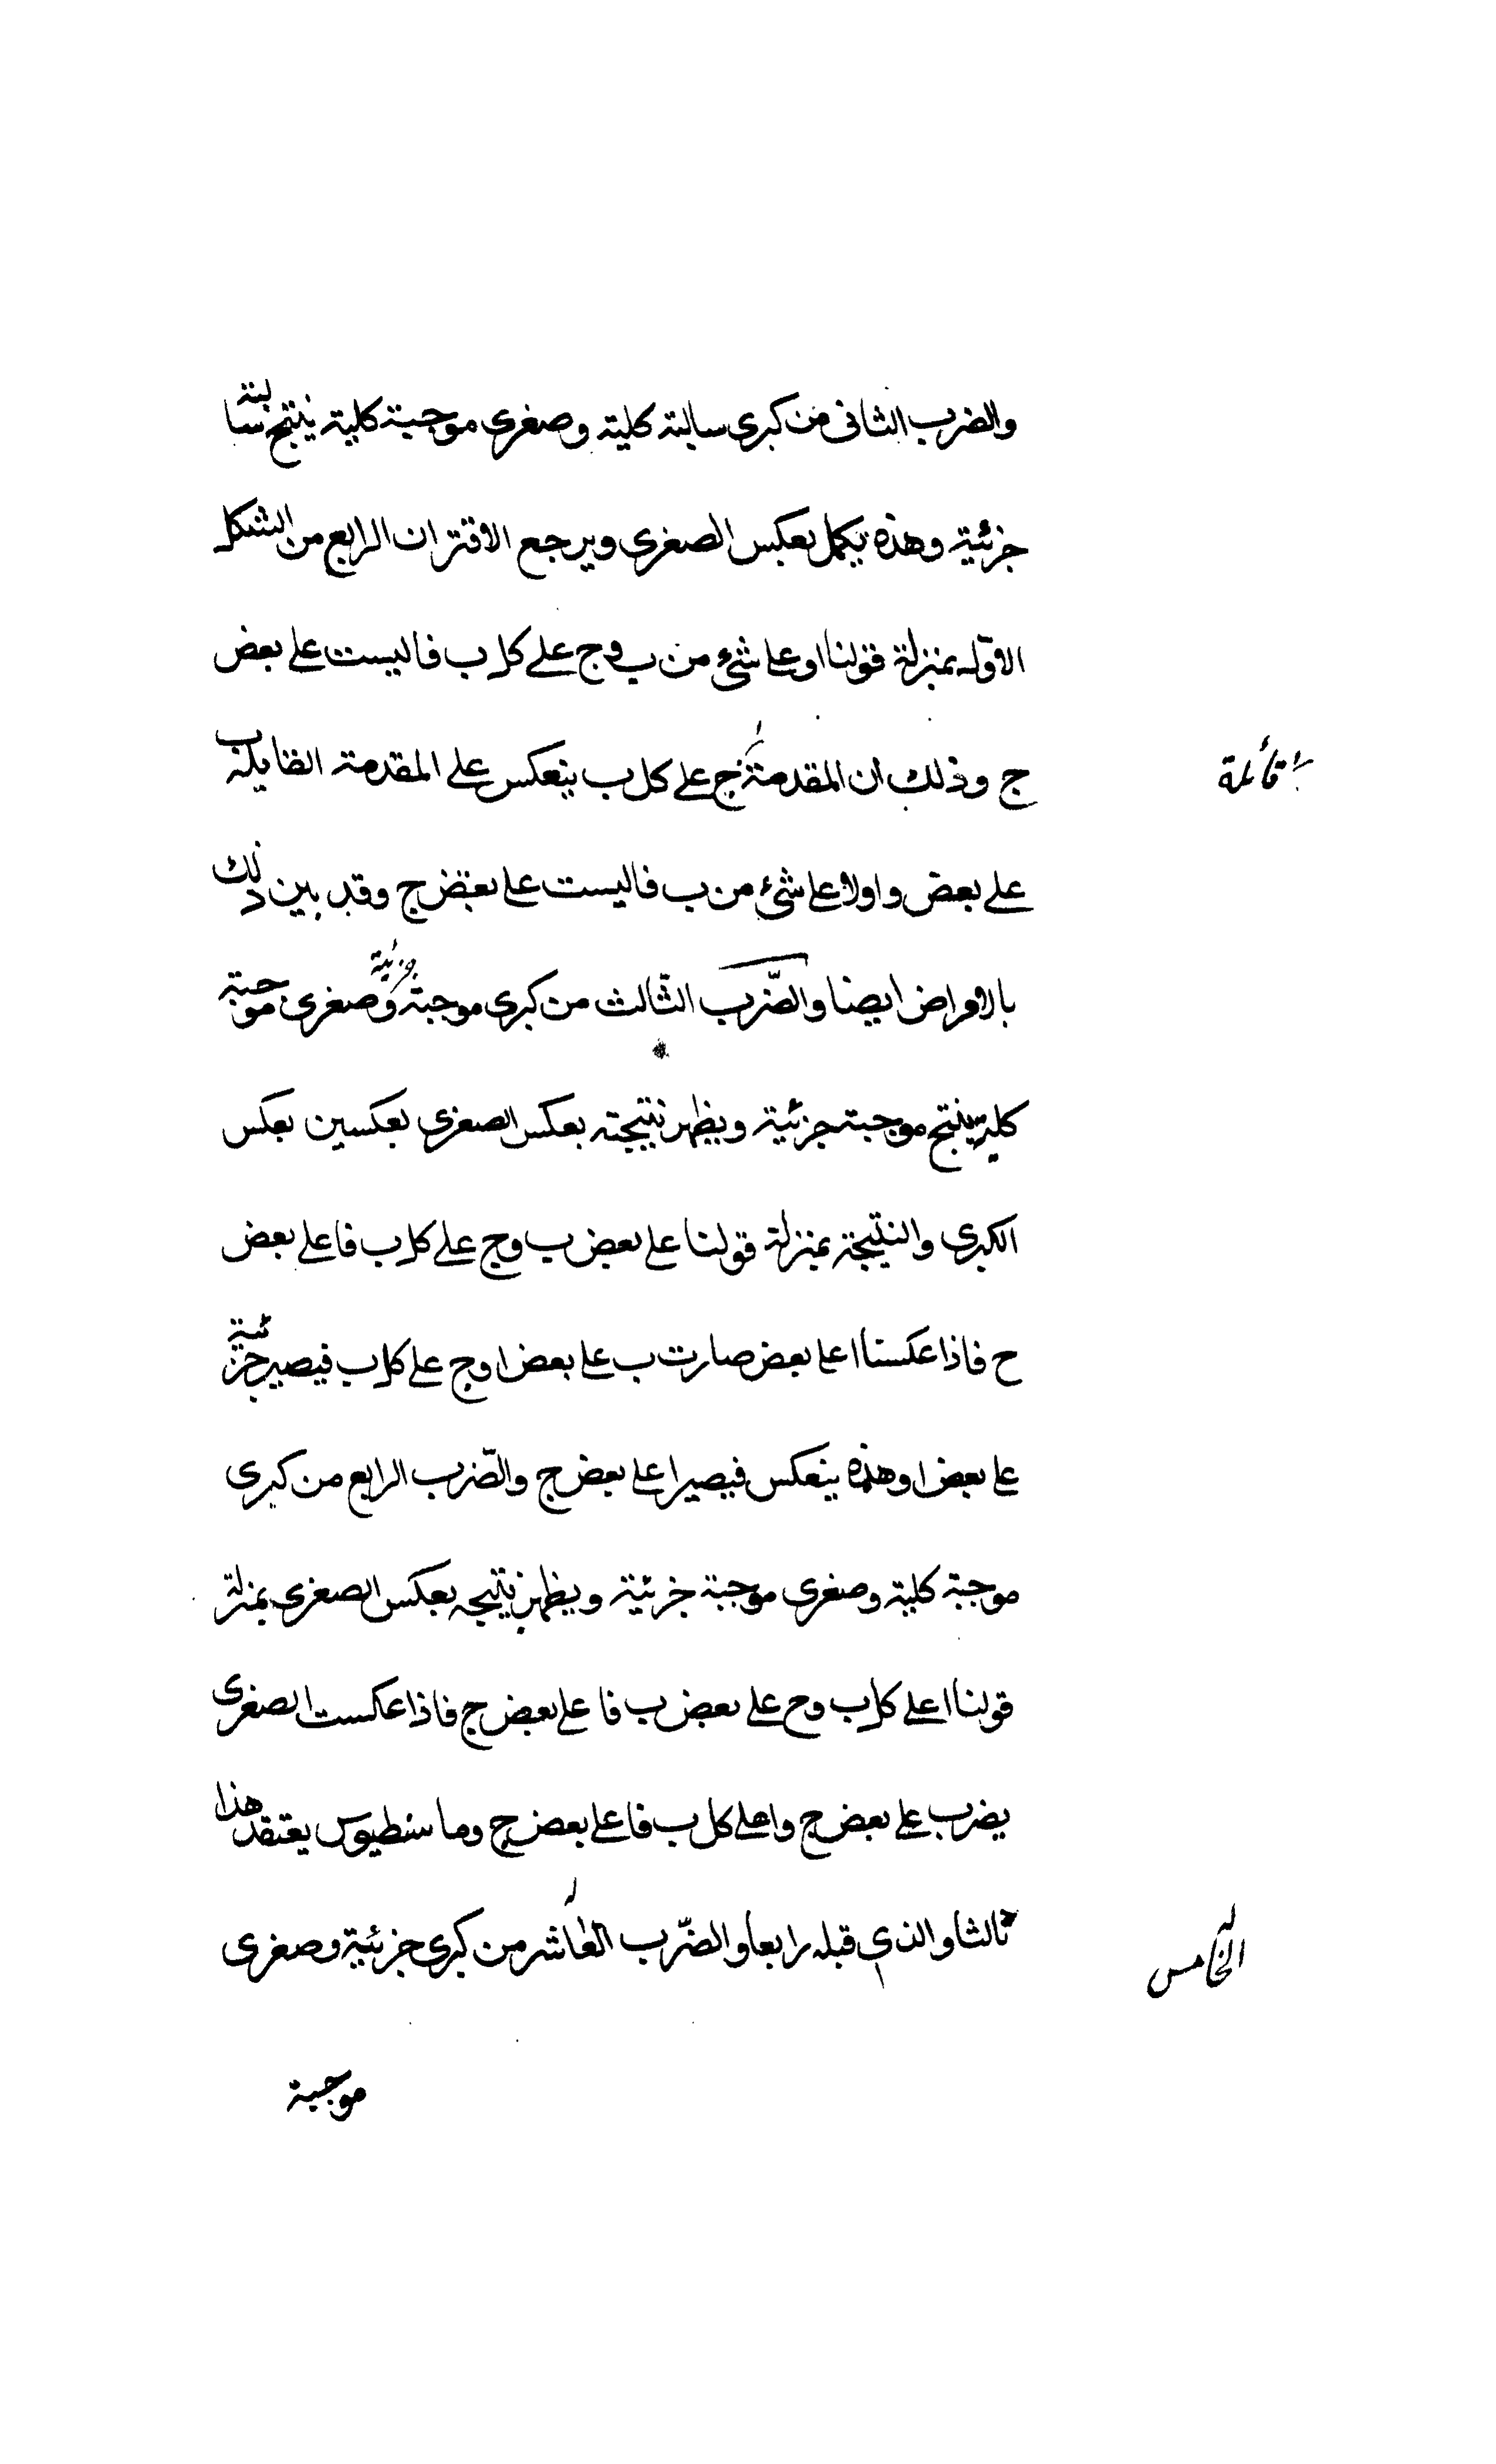 والضرب الثاني من كبرى سالبة كلية وصغرى موجبة كلية ينتج سالبة
جزئية وهذه يكمل بعكس الصغرى ويرجع الاقتران الرابع من الشكل
الاول بمنزلة قولنا ا وعلى شئ من ب وج على كل ب فا ليست على بعض
ج وذلك ان المقدمة ج على كل ب ينعكس على المقدمة القايلة ب
قائلة
على بعض وا ولا على شئ من ب فا ليست على بعض ج وقد بين ذلك
بالافراض ايضا والضّرب الثّالث من كبرى موجبة جزئية وصغرى موجبة
كلية ينتج موجبة جزئية ويظهر نتيجته بعكس الصغرى بعكسين بعكس
الكبرى والنتيجة بمنزلة قولنا على بعض ب وج على كل ب فا على بعض
ح فاذا عكسنا ا على بعض صارت ب على بعض ا وج على كل ب فيصير جزئية
على بعض ا وهذه ينعكس فيصير ا على بعض ج والضّرب الرابع من كبرى
موجبة كلية وصغرى موجبة جزئية ويظهر نتيجه بعكس الصغرى بمنزلة
قولنا ا على كل ب وح على بعض ب فا على بعض ج فاذا عكست الصغرى
يضرب على بعض ج وا على كل ب فا على بعض ج وما سنطيوس يعتقد هذا
ثالثا والذي قبله رابعا والضّرب العاشر من كبرى جزئية وصغرى
الخامس
موجبة